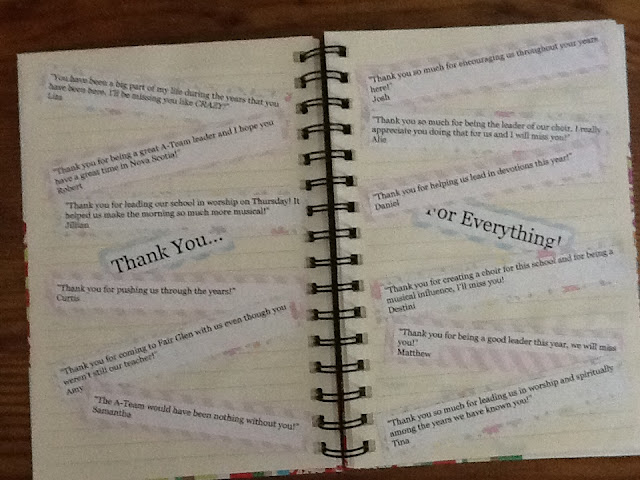 "You have been a big part of my life during the years that you
have been here, I'll be missing you like CRAZY!"
Liza
"Thank you for being a great A-Team leader and I hope you
have a great time in Nova Scotia!"
Robert
"Thank you for leading our school in worship on Thursday! It
helped us make the morning so much more musical!"
Jillian
Thank You...
"Thank you for pushing us through the years!"
Curtis
"Thank you for coming to Fair Glen with us even though you
weren't still our teacher!"
Amy
"The A-Team would have been nothing without you!"
Samantha
"Thank you so much for encouraging us throughout your years
here!"
Josh
"Thank you so much for being the leader of our choir, I really
appreciate you doing that for us and I will miss you!"
Alie
"Thank you for helping us lead in devotions this year!"
Daniel
For Everything!
"Thank you for creating a choir for this school and for being a
musical influence, I'll miss you!
Destini
"Thank you for being a good leader this year, we will miss
you!"
Matthew
"Thank you so much for leading us in worship and spiritually
among the years we have known you!"
Tina